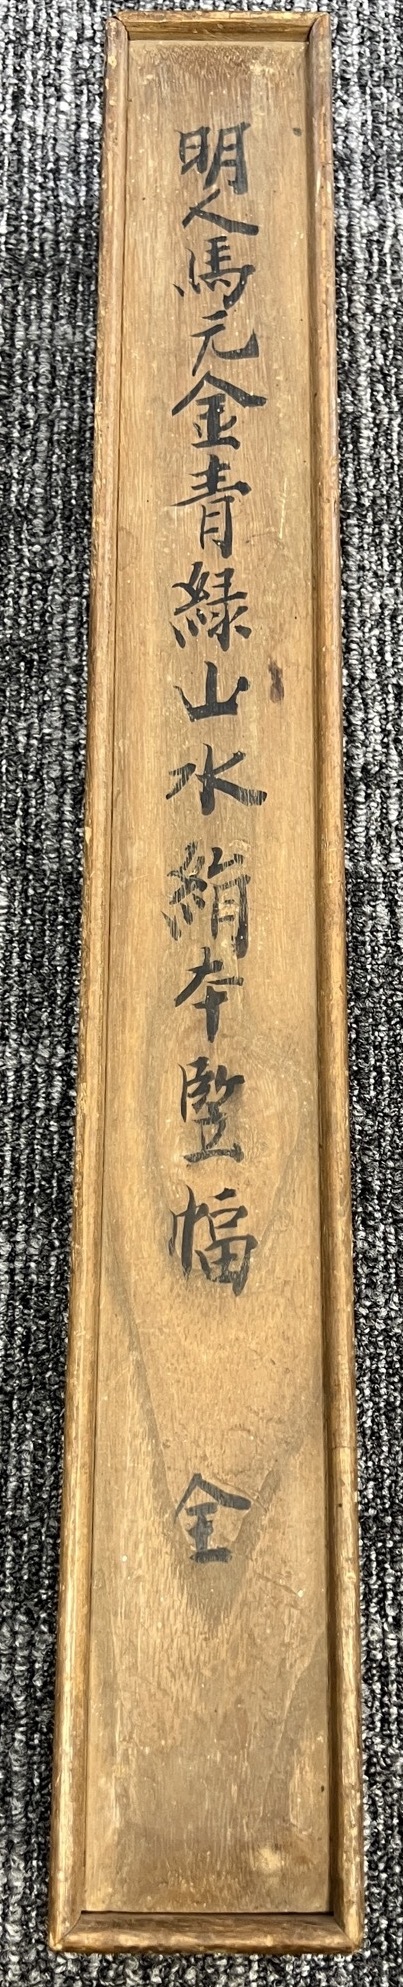 明人馬元金青緑山水絹本竪幅 全